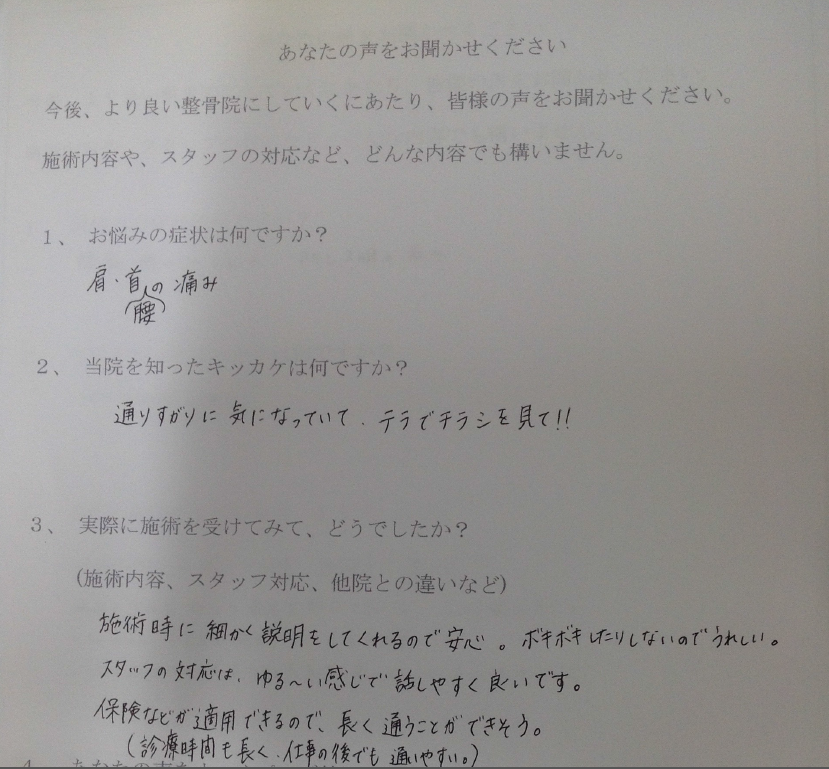 あなたの声をお聞かせください
今後、より良い整骨院にしていくにあたり、皆様の声をお聞かせください。
施術内容や、スタッフの対応など、どんな内容でも構いません。
1、 お悩みの症状は何ですか？
肩・首の痛み
(腰)
2、 当院を知ったキッカケは何ですか？
通りすがりに気になっていて、テラでチラシを見て!!
3、 実際に施術を受けてみて、どうでしたか？
(施術内容、スタッフ対応、他院との違いなど)
施術時に細かく説明をしてくれるので安心。ボキボキしたりしないのでうれしい。
スタッフの対応は、ゆる〜い感じで話しやすく良いです。
保険などが適用できるので、長く通うことができそう。
(診療時間も長く、仕事の後でも通いやすい。)